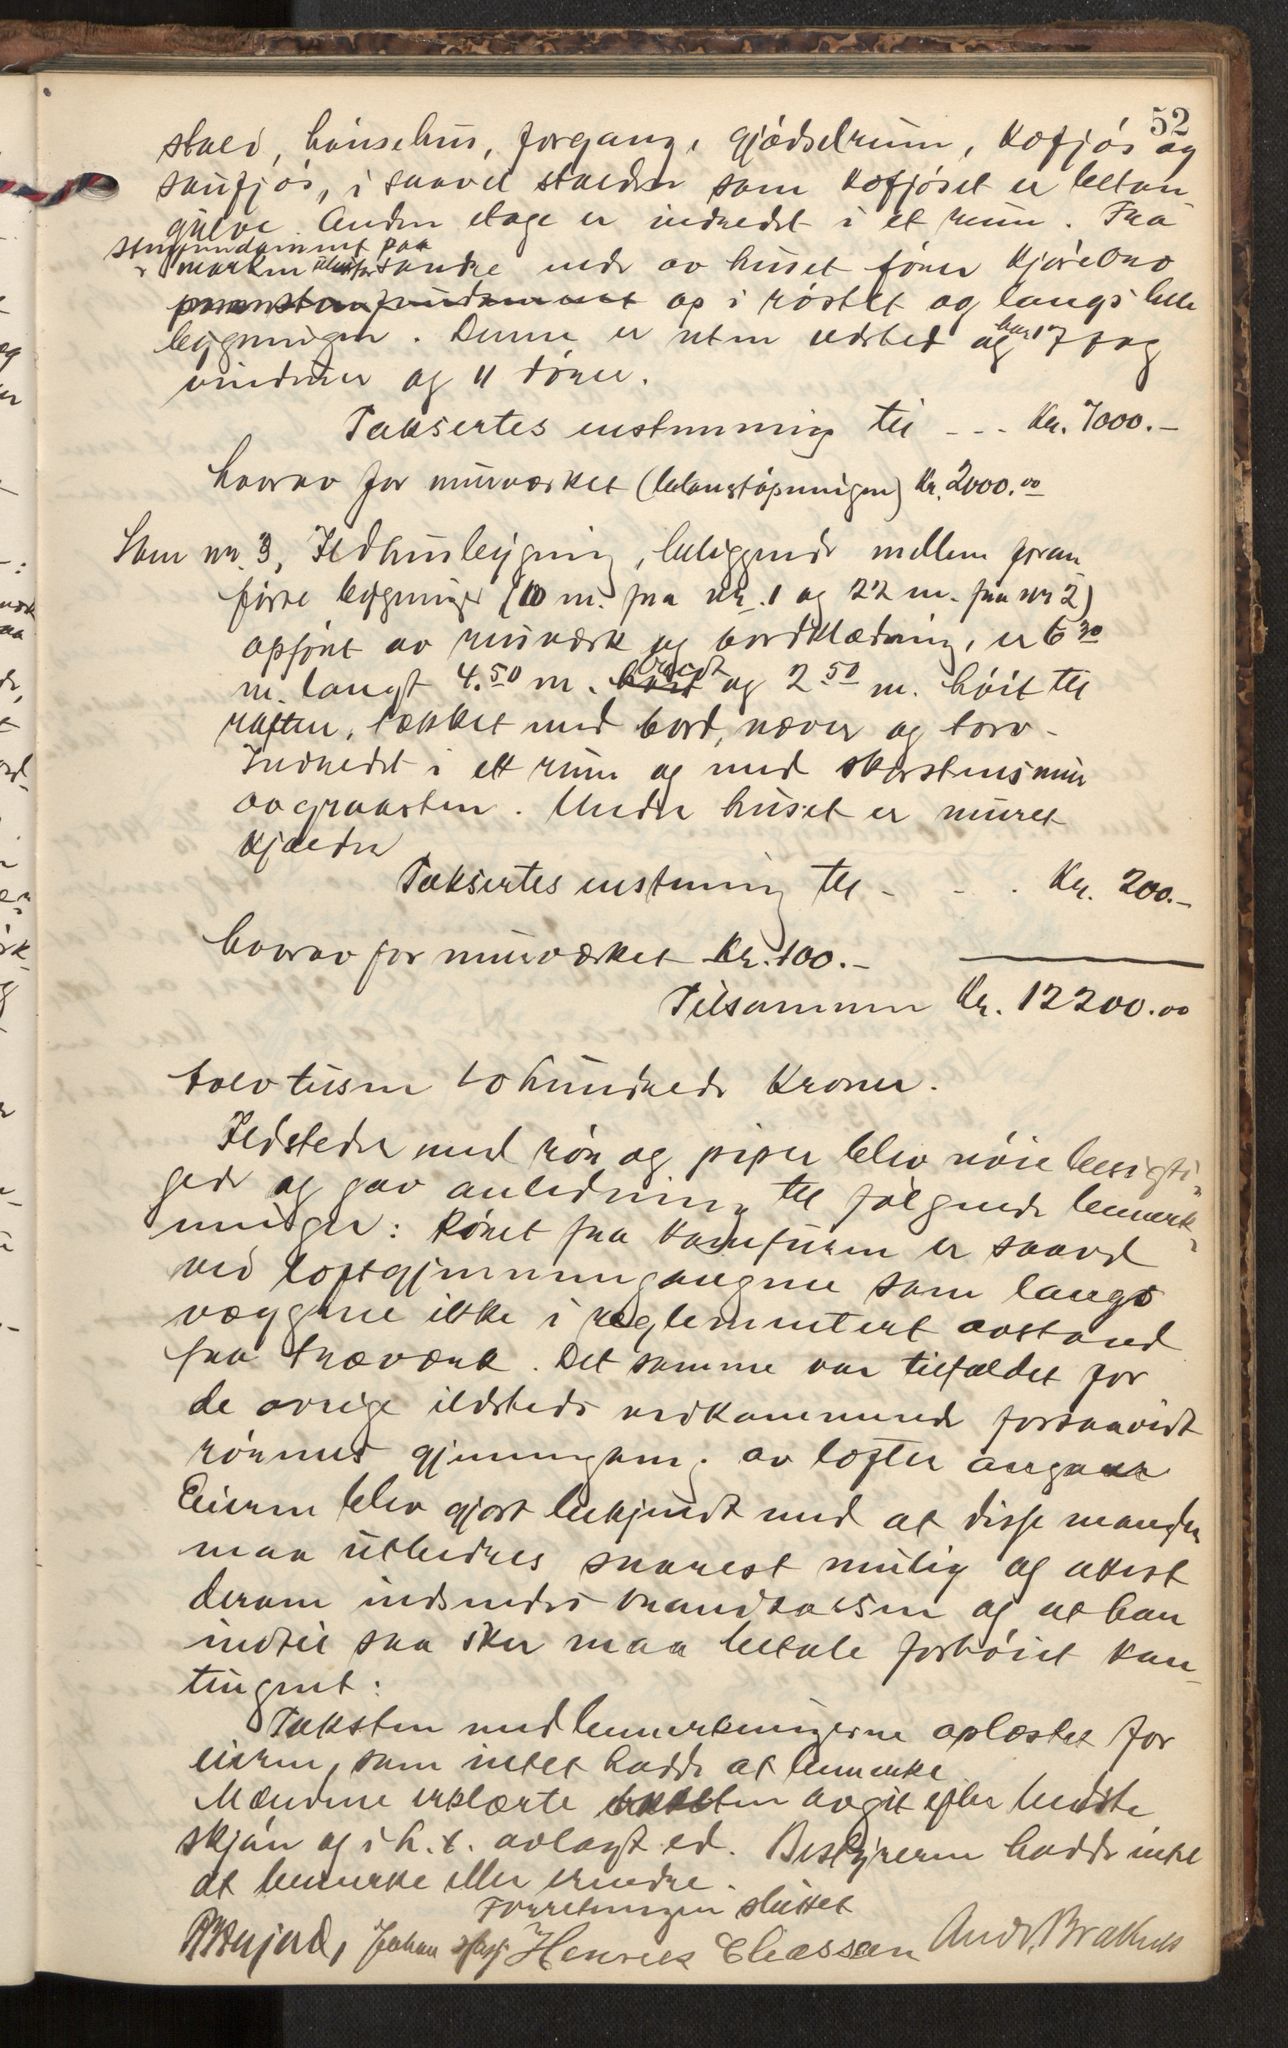 52
stald, hönsehus, forgang, gjödselrum, kofjös og
saufjös, i saavel stalden som kofjöset er beton
gulve. Anden etage er indredet i et rum. Fra
stengrundammet paa
marken utenfor søndre ende av huset förer kjörebro
op i röstet og langs hele
bygningen. Denne er uten ildsted og har 17 fag
vinduer og 11 dörer.
Taksertes enstemmig til - - - Kr. 7000.-
hvorav for murverket (betonstöpningen) Kr. 2000.00
Som nr. 3, Ildhusbygning, beliggende mellem foran
förte bygninger (10 m. fra nr. 1 og 22 m. fra nr 2)
opfört av murværk og bordklædning, er 6.30
m. langt 4.50 m. bredt og 2.50 m. höit til
raften, tækket med bord, næver og torv -
Indredet i ett rum og med skorstensmur
av graasten. Under huset er muret
kjælder
Taksertes enstemmig til - - . Kr. 200.-
hvorav for murværket Kr. 100.-
Tilsammen Kr. 12200.00
tolv tusen to hundrede Kroner.
Ildsteder med rör og piper blev nöie besigti-
gede og gav anledning til fölgende bemerk-
ninger: Röret fra komfuren er saavel
ved loftgjennemgangene som langs
væggene ikke i reglementert avstand
fra træværk. Det samme var tilfældet for
de övrige ildsteds vedkommende forsaavidt
rörenes gjennemgang av lofter angaar
Eieren blev gjort bekjendt med at disse mangler
maa utbedres snarest mulig og attest
derom indsendes brandkassen og at han
indtil saa sker maa betale forhöiet kon-
tingent.
Taksten med bemerkningerne oplæstes for
eieren, som intet hadde at bemerke
Mændene erklærte taksten avgit efter bedste
skjön og i h. t. avlagt ed. Bestyreren hadde intet
at bemerke eller erindre.
Forretningen sluttet
Johan Henrik Eliassen Andr. Brækhus